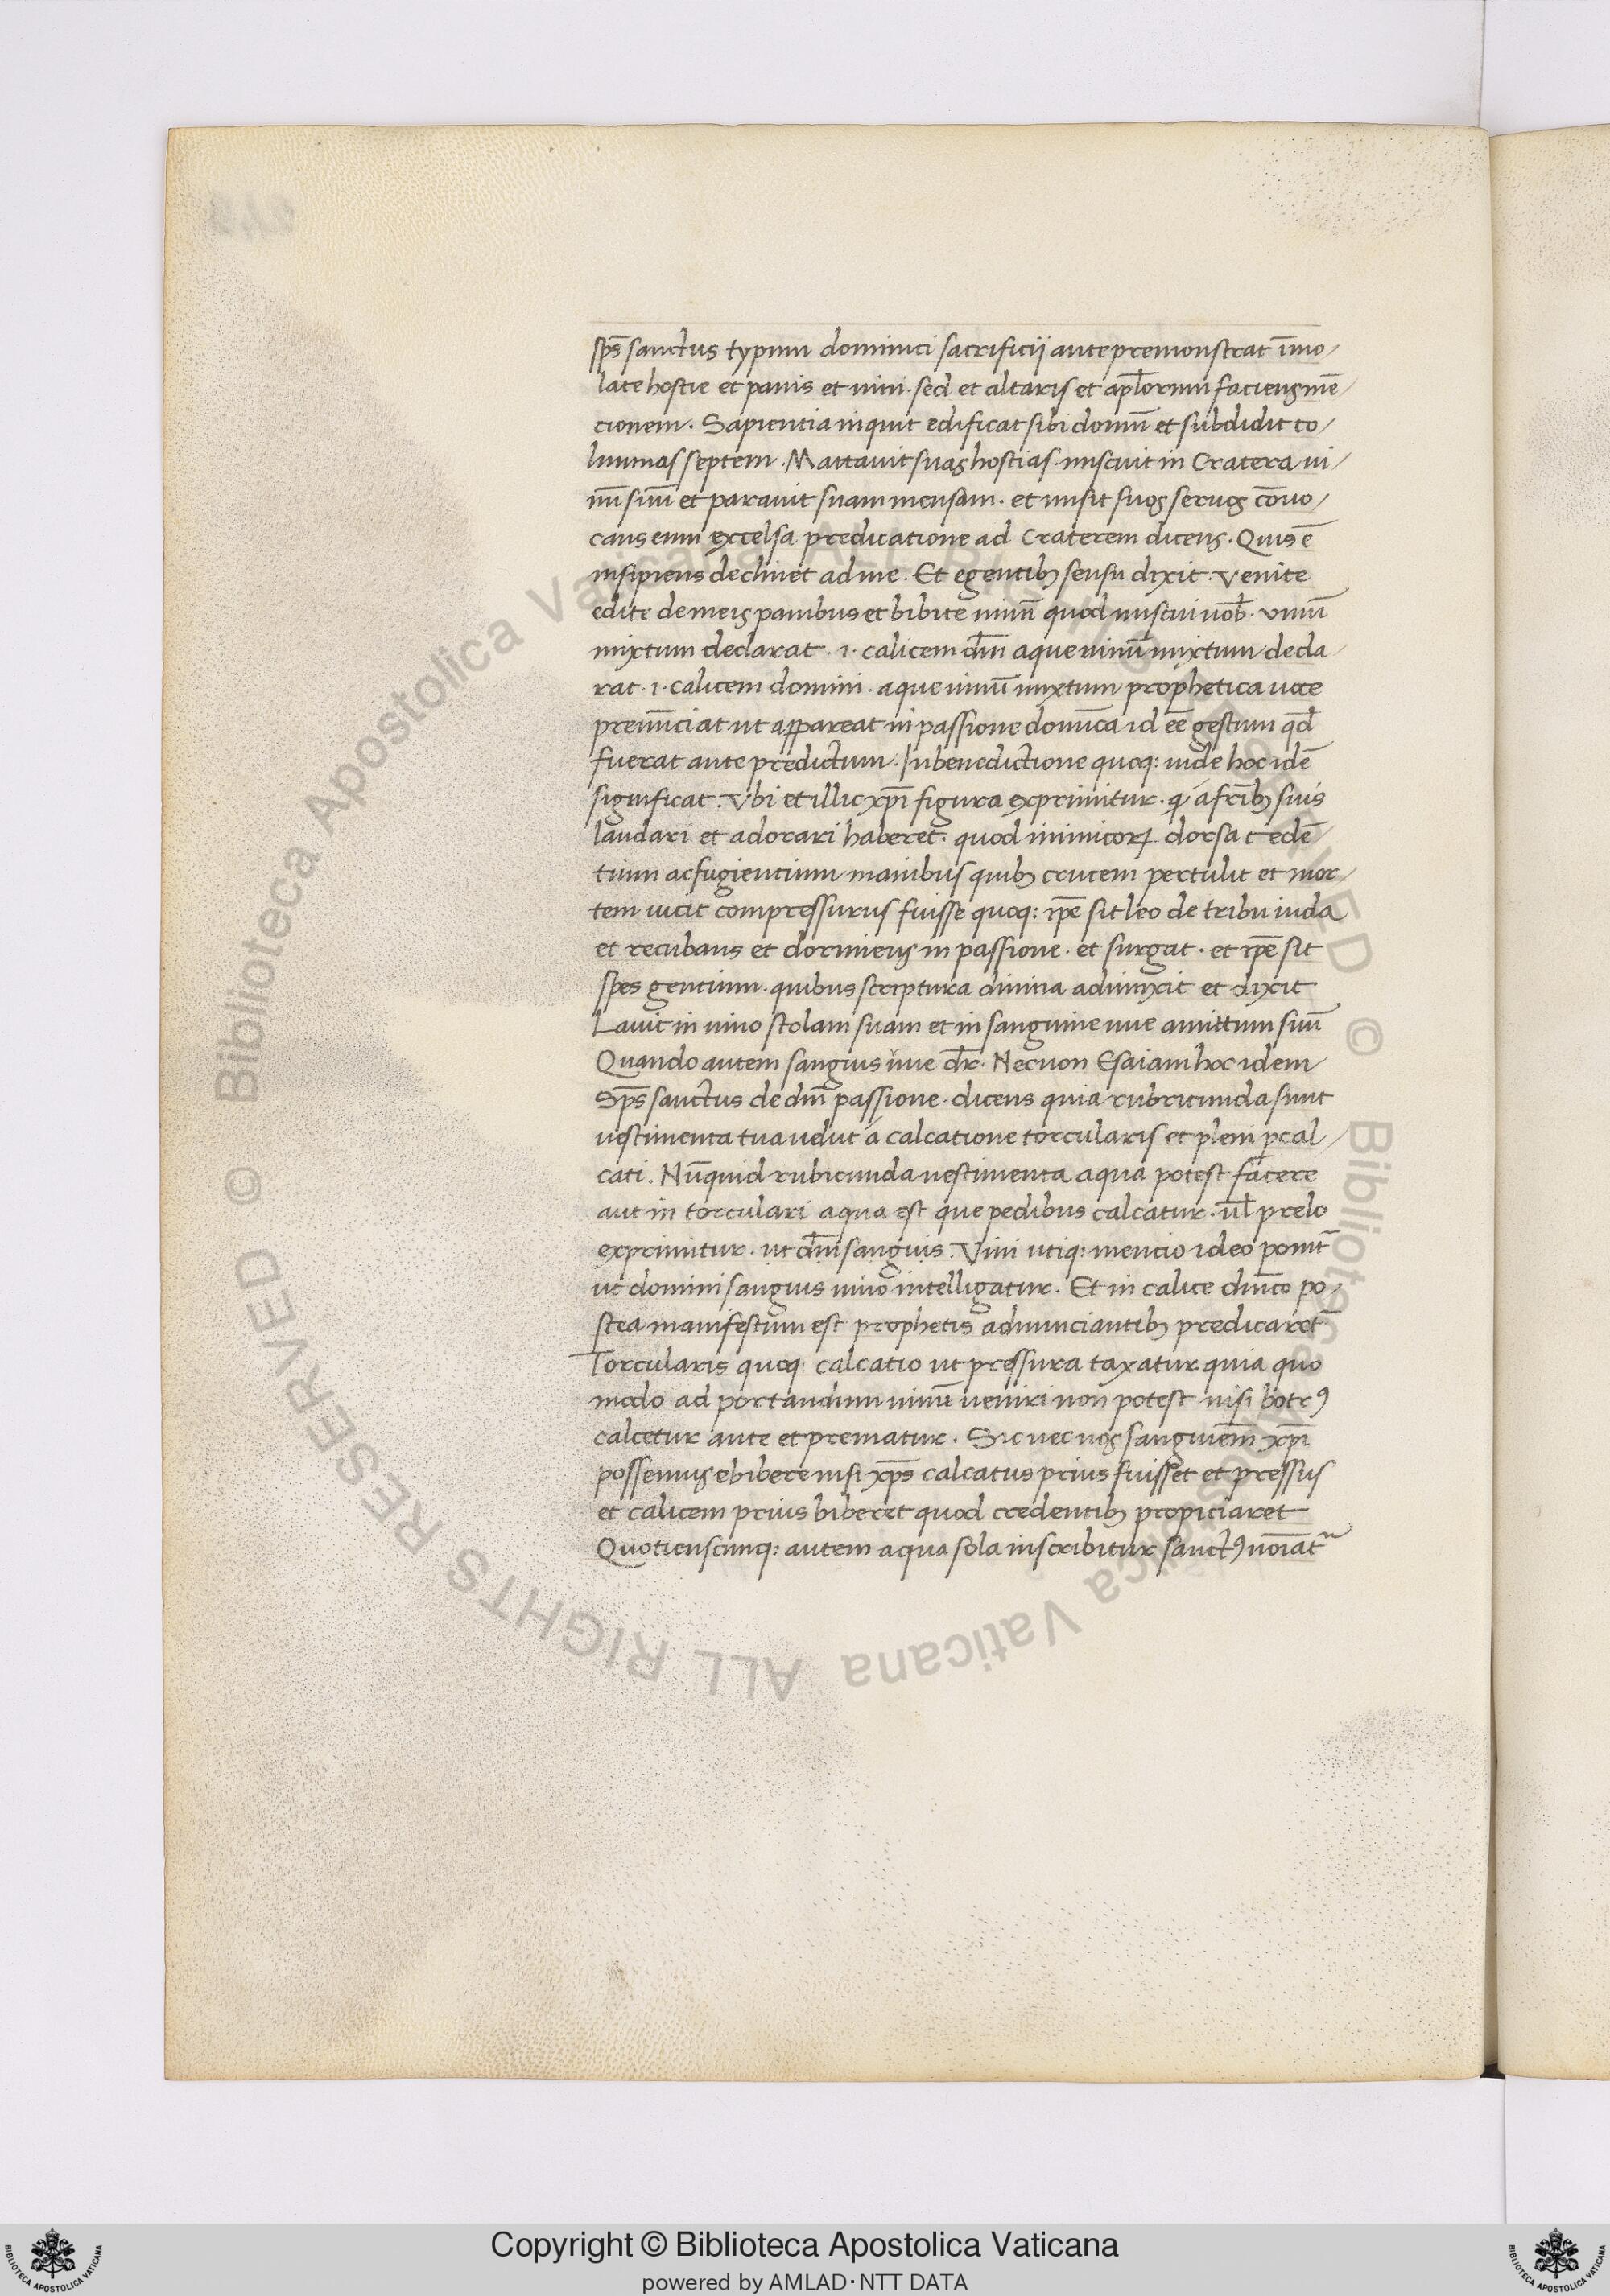 sp̄s sanctus typum dominici sacrificii ante premonstrat īmo/
late hostie et panis et uini · sed et altaris et apl̄orum faciens mē/
tionem · Sapientia inquit edificat sibi domū et subdidit co/
lumnas septem · Mattauit suas hostias · miscuit in Cratera ui/
nū suū et parauit suam mensam · et misit suos seruos cōuo/
cans eum excelsa predicatione ad Craterem dicens · Quis ē
insipiens declinet ad me · Et egentibꝫ sensu dixit · Venite
edite de meis panibus et bibite uinū quod miscui uob̄ · vinū
mixtum declarat · i · calicem dn̄i aque uinū mixtum decla/
rat · i · calicem domini · aque uinū mixtum prophetica uoce
prenūciat ut appareat in passione domīca id eē gestum qd̄
fuerat ante predictum · In benedictione quoq: iude hoc idē
significat · Vbi et illic xp̄i figura exprimitur · q' á fr̄ibꝫ suis
laudari et adorari haberet · quod inimicoꝝ dorsa cedē
tium ac fugientium manibus quibꝫ crucem pertulit et mor/
tem uicit compressurus fuisse quoq: ip̄e sit leo de tribu iuda
et recubans et dormiens in passione · et surgat · et ip̄e sit
spes gentium · quibus scriptura diuina adiunxit et dixit
Lauit in uino stolam suam et in sanguine uue amittum suū
Quando autem sangius uue dr̄ · Necnon Esaiam hoc idem
Sp̄s sanctus de dn̄i passione · dicens quia rubricunda sunt
uestimenta tua uelut á calcatione torcularis et pleni ꝑcal/
cati · Nūquid rubicunda uestimenta aqua potest facere
aut in torculari aqua est que pedibus calcatur · ul̄ prelo
exprimitur · ut dn̄i sanguis · Vini utiq: mencio ideo ponit̄
ut domini sangius uino intelligatur · Et in calice dn̄ico po/
stea manifestum est prophetis adnunciantibꝫ predicaret̄
Torcularis quoq: calcatio ut pressura taxatur quia quo
modo ad portandum uinū ueniri non potest nisi botrꝰ
calcetur ante et prematur · Sic nec nos sanguinēm xp̄i
possemus ebibere nisi xp̄s calcatus prius fuisset et pressus
et calicem prius biberet quod credentibꝫ propiciaret
Quotienscunq: autem aqua sola inscribitur sanctꝰ noīat̄
Copyright © Biblioteca Apostolica Vaticana
powered by AMLAD·NTT DATA
Biblioteca Apostolica Vaticana ALL RIGHTS RESERVED © Biblioteca Apostolica Vaticana ALL RIGHTS RESERVED ©
BIBLIOTECA APOSTOLICA VATICANA
BIBLIOTECA APOSTOLICA VATICANA